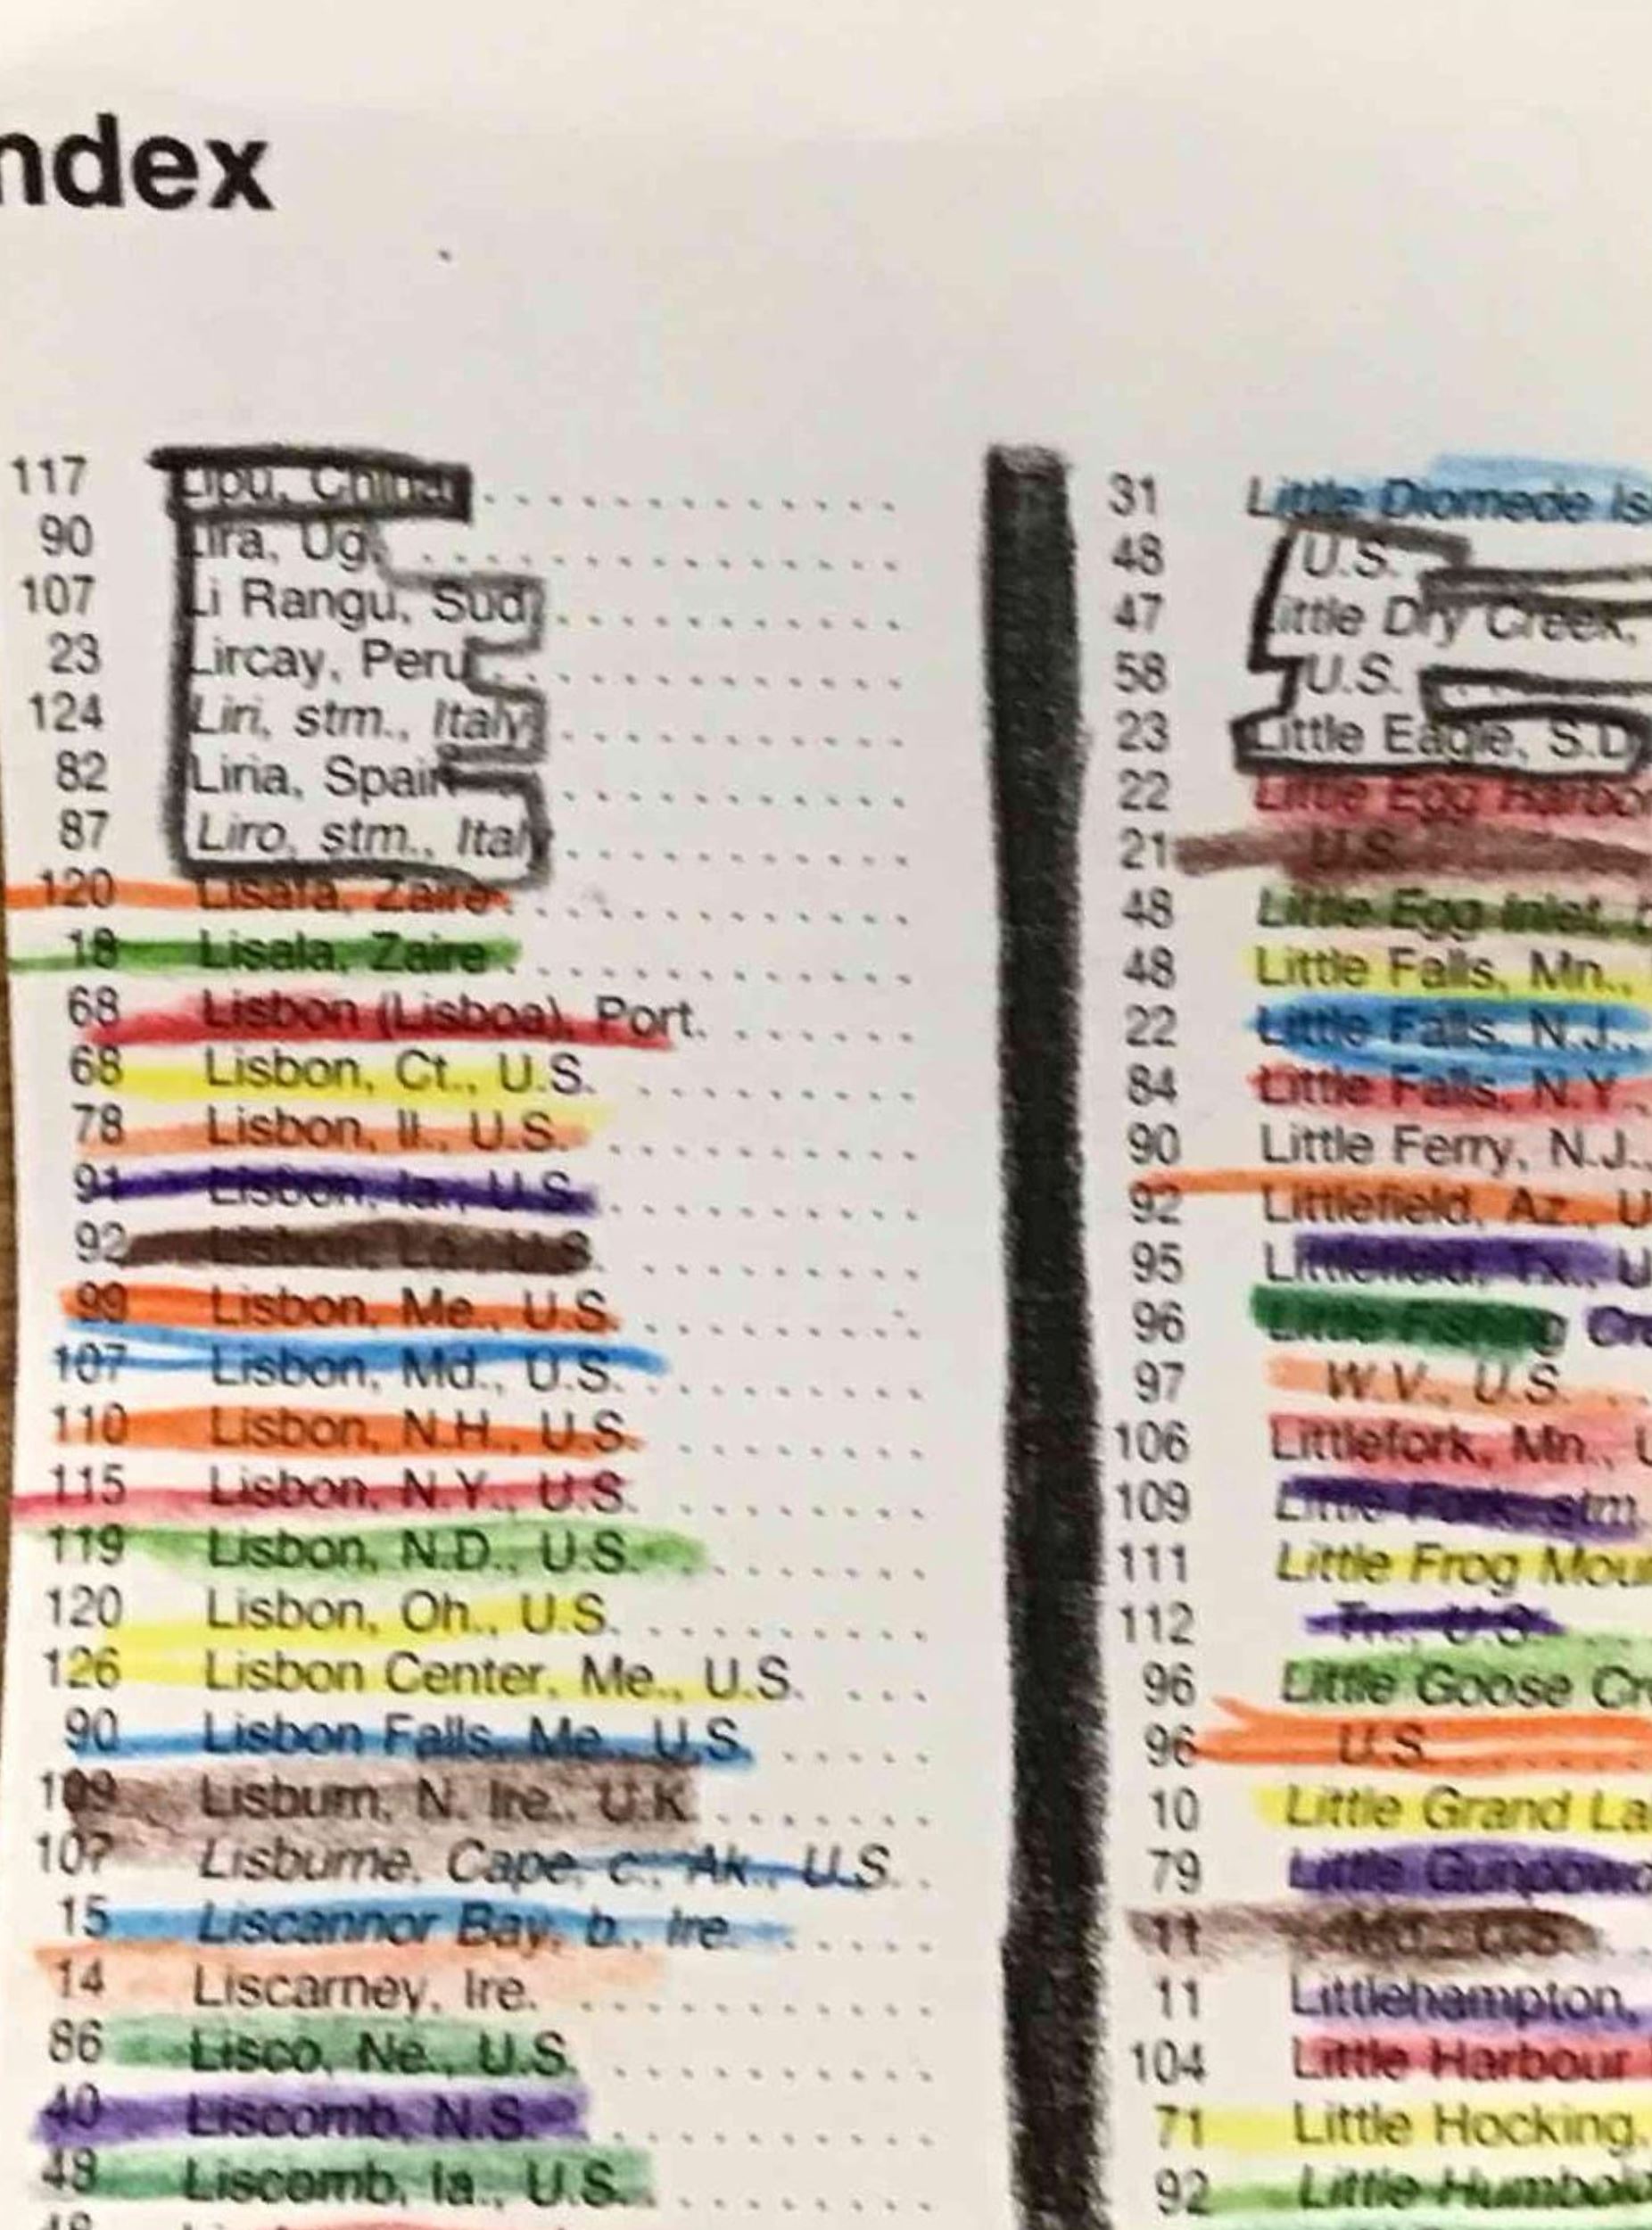 ndex
117
90
107
23
124
82
87
120
18
68
68
78
91
92
99
107
110
115
119
120
126
90
109
107
15
14
86
40
49
Lipu, China
Lira, Ug.
Li Rangu, Sud.
Lircay, Peru
Liri, stm., Italy
Liria, Spain
Liro, stm., Italy
Lisala, Zaire
Lisala, Zaire
Lisbon (Lisboa), Port.
Lisbon, Ct., U.S.
Lisbon, Il., U.S.
Lisbon, Ia., U.S.
Lisbon, La., U.S.
Lisbon, Me., U.S.
Lisbon, Md., U.S.
Lisbon, N.H., U.S.
Lisbon, N.Y., U.S.
Lisbon, N.D., U.S.
Lisbon, Oh., U.S.
Lisbon Center, Me., U.S.
Lisbon Falls, Me., U.S.
Lisburn, N. Ire., U.K.
Lisburne, Cape, c., Ak., U.S.
Liscannor Bay, b., Ire.
Liscarney, Ire.
Lisco, Ne., U.S.
Liscomb, N.S.
Liscomb, Ia., U.S.
31
48
47
58
23
22
21
48
48
22
84
90
92
95
96
97
106
109
111
112
96
96
10
79
11
11
104
71
92
Little Diomede Is
U.S.
Little Dry Creek,
U.S.
Little Eagle, S.D
Little Egg Harbo
U.S.
Little Egg Inlet,
Little Falls, Mn.,
Little Falls, N.J.,
Little Falls, N.Y.,
Little Ferry, N.J.,
Littlefield, Az., U
Littlefield, Tx., U
Little Fishing Cre
W.V., U.S.
Littlefork, Mn., U
Little Fork, stm.
Little Frog Mou
Tn., U.S.
Little Goose Cr
U.S.
Little Grand La
Little Gunpowd
Md., U.S.
Littlehampton,
Little Harbour
Little Hocking,
Little Humbold